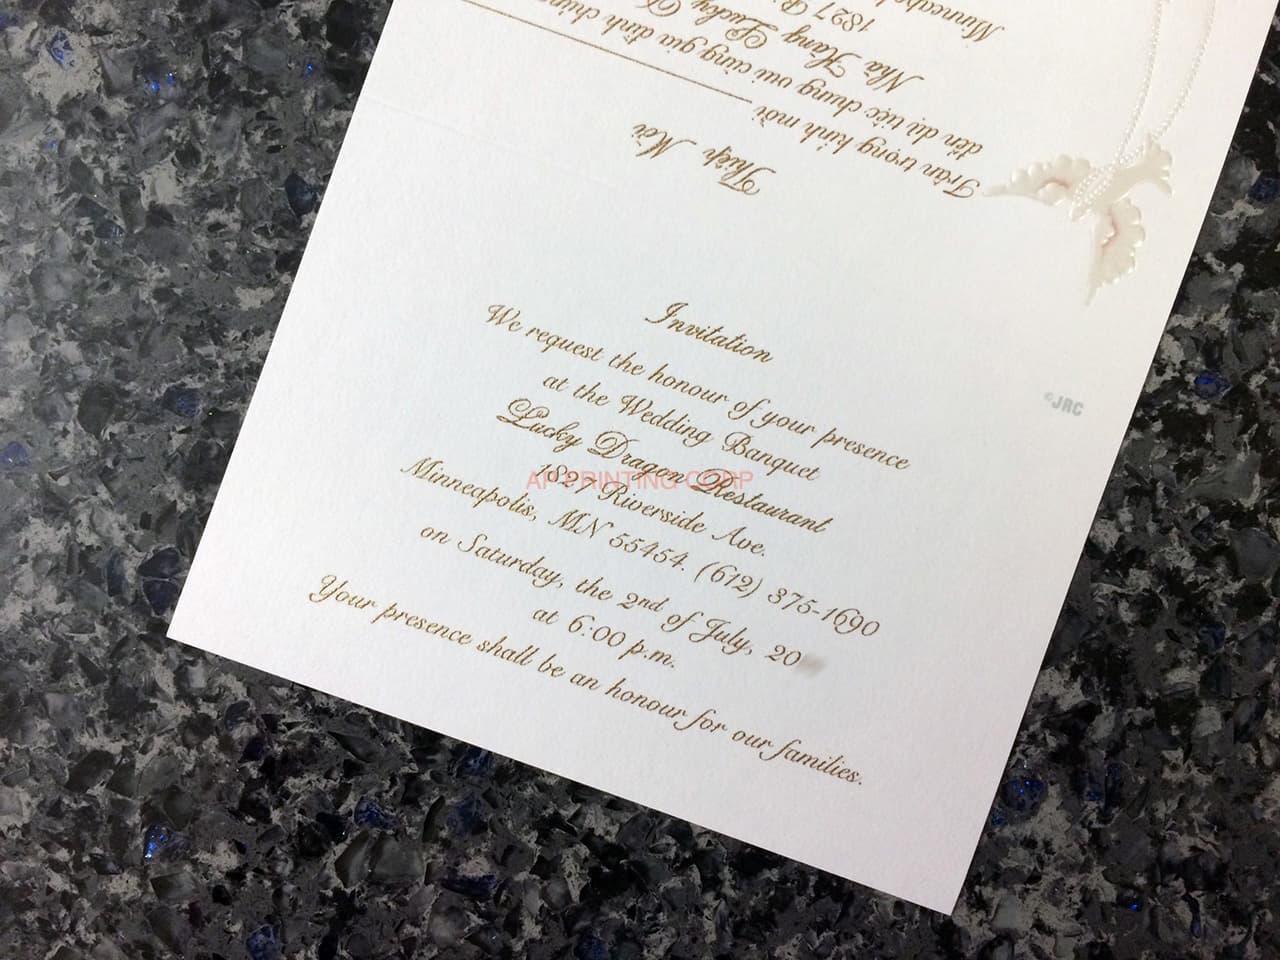 Thiệp Mời
Trân trọng kính mời
đến dự tiệc chung vui cùng gia đình chúng
Nhà Hàng Lucky
1827
Invitation
We request the honour of your presence
at the Wedding Banquet
Lucky Dragon Restaurant
1827 Riverside Ave.
Minneapolis, MN 55454. (612) 375-1690
on Saturday, the 2nd of July, 20
at 6:00 p.m.
Your presence shall be an honour for our families.
©JRC
AP PRINTING CORP